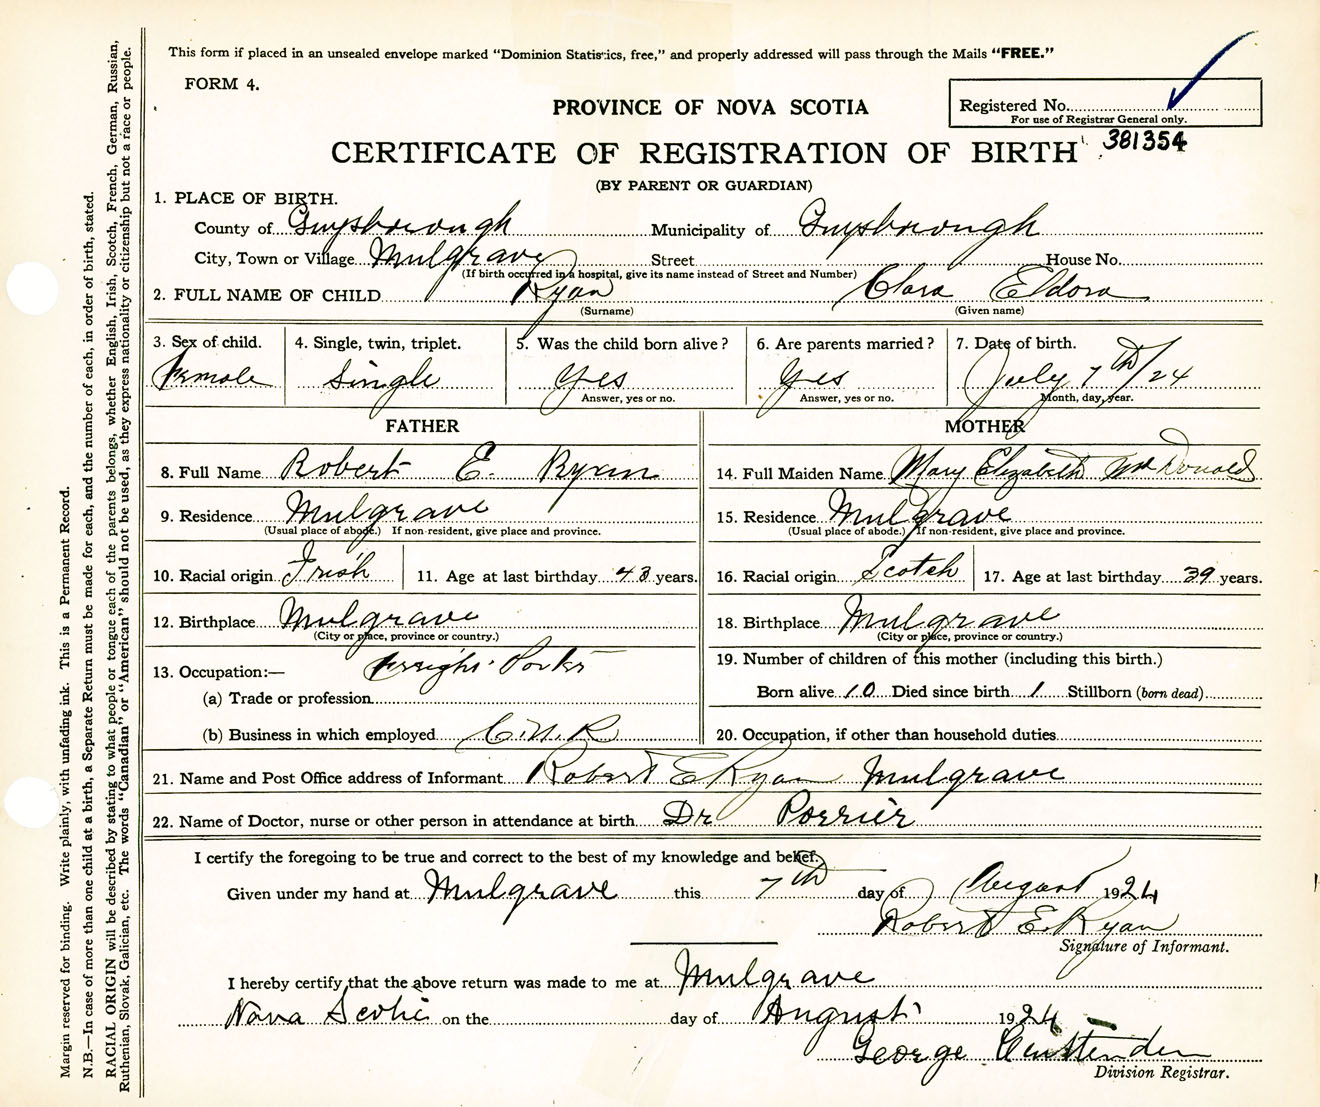 This form if placed in an unsealed envelope marked "Dominion Statistics, free," and properly addressed will pass through the Mails "FREE."
FORM 4.
PROVINCE OF NOVA SCOTIA
Registered No.
For use of Registrar General only.
381354
CERTIFICATE OF REGISTRATION OF BIRTH
(BY PARENT OR GUARDIAN)
1. PLACE OF BIRTH.
County of Guysborough Municipality of Guysborough
City, Town or Village Mulgrave Street House No.
(If birth occurred in a hospital, give its name instead of Street and Number)
2. FULL NAME OF CHILD Ryan Clara Eldora
(Surname) (Given name)
3. Sex of child. 4. Single, twin, triplet. 5. Was the child born alive? 6. Are parents married? 7. Date of birth.
Female Single Yes Yes July 7th/24
Answer, yes or no. Answer, yes or no. Month, day, year.
FATHER MOTHER
8. Full Name Robert E. Ryan 14. Full Maiden Name Mary Elizabeth McDonald
9. Residence Mulgrave 15. Residence Mulgrave
(Usual place of abode.) If non-resident, give place and province. (Usual place of abode.) If non-resident, give place and province.
10. Racial origin Irish 11. Age at last birthday 43 years. 16. Racial origin Scotch 17. Age at last birthday 39 years.
12. Birthplace Mulgrave 18. Birthplace Mulgrave
(City or place, province or country.) (City or place, province or country.)
13. Occupation:— 19. Number of children of this mother (including this birth.)
(a) Trade or profession Born alive 10 Died since birth 1 Stillborn (born dead)
(b) Business in which employed C.N.R 20. Occupation, if other than household duties
21. Name and Post Office address of Informant Robert E Ryan Mulgrave
22. Name of Doctor, nurse or other person in attendance at birth Dr Porrier
I certify the foregoing to be true and correct to the best of my knowledge and belief.
Given under my hand at Mulgrave this 7th day of August 1924
Robert E. Ryan
Signature of Informant.
I hereby certify that the above return was made to me at Mulgrave
Nova Scotia on the day of August 1924
George
Division Registrar.
Margin reserved for binding. Write plainly, with unfading ink. This is a Permanent Record.
N.B.—In case of more than one child at a birth, a Separate Return must be made for each, and the number of each, in order of birth, stated.
RACIAL ORIGIN will be described by stating to what people or tongue each of the parents belongs, whether English, Irish, Scotch, French, German, Russian,
Ruthenian, Slovak, Galician, etc. The words "Canadian" or "American" should not be used, as they express nationality or citizenship but not a race or people.